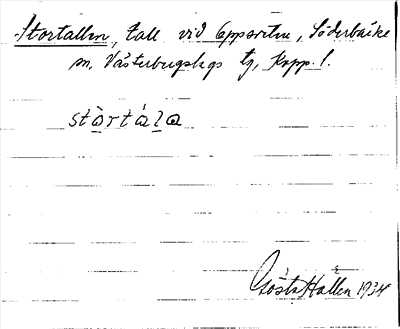 Stortallen, tall vid Opparvten, Söderbärke
sn, Västerbergslags tg, Kopp. l.
stòrtála
Gösta Hallén 1934